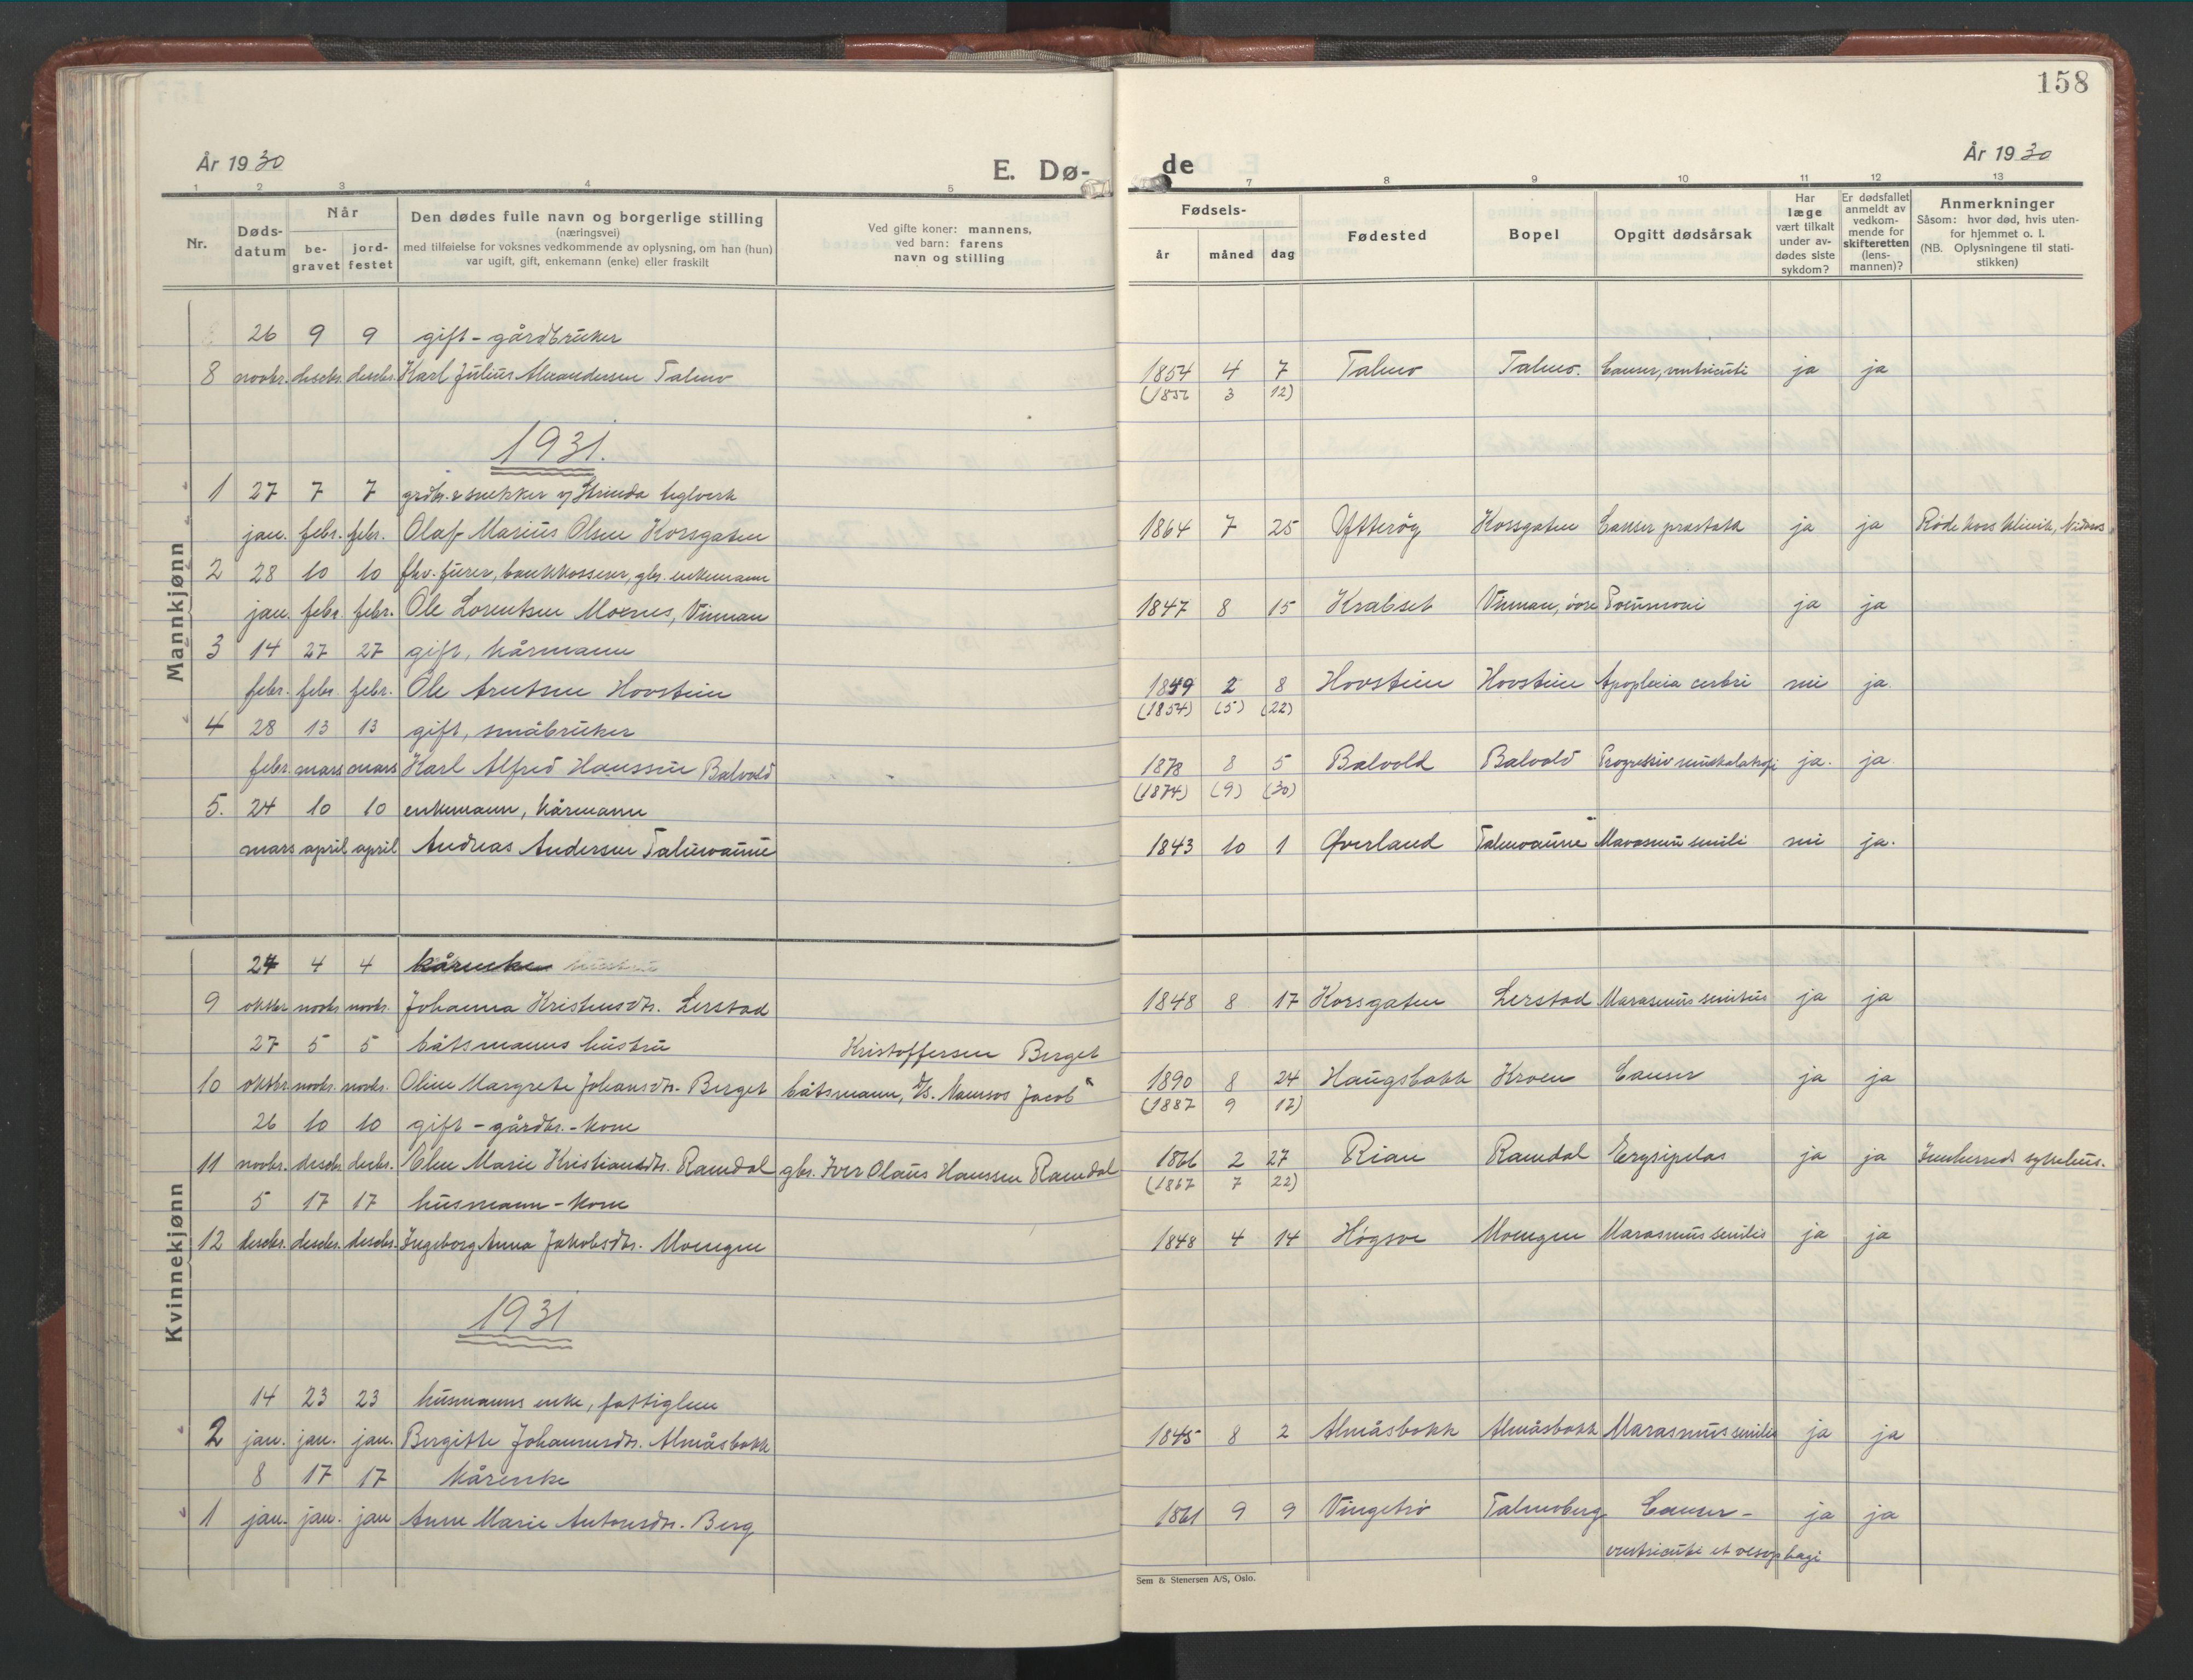 158
År 1930
E. Dø-
de
År 1930
1 2 3 4 5 7 8 9 10 11 12 13
Nr.
Døds-
datum
Når
be-
gravet
jord-
festet
Den dødes fulle navn og borgerlige stilling
(næringsvei)
med tilføielse for voksnes vedkommende av oplysning, om han (hun)
var ugift, gift, enkemann (enke) eller fraskilt
Ved gifte koner: mannens,
ved barn: farens
navn og stilling
Fødsels-
år måned dag
Fødested
Bopel
Opgitt dødsårsak
Har
læge
vært tilkalt
under av-
dødes siste
sykdom?
Er dødsfallet
anmeldt av
vedkom-
mende for
skifteretten
(lens-
mannen)?
Anmerkninger
Såsom: hvor død, hvis uten-
for hjemmet o. l.
(NB. Oplysningene til stati-
stikken)
Mannkjønn
26 9 9 gift - gårdbruker
8 novbr. desbr. desbr. Karl Julius Alexandersen Talmo 1854 4 7 Talmo Talmo. Canser, ventriculi ja ja
3 12)
1931.
1 27 7 7 grdbr. & snekker v/ Strinda teglverk
jan. febr. febr. Olaf Marius Olsen Korsgaten 1864 7 25 Ytterøy Korsgaten Canser prostata ja ja Røde kors klinik,
2 28 10 10 fhv. furer, bankkasserer, gbr. enkemann
jan. febr. febr. Ole Lorentsen Moenes, Vinman 1847 8 15 Krabset Vinman, øvre ja ja
3 14 27 27 gift, kårmann
febr. febr. febr. Ole Arntsen Hovstein 1849 2 8 Hovstein Hovstein Apoplexia cerbri nei ja.
(1854) (5) (22)
4 28 13 13 gift, småbruker
febr. mars mars Karl Alfred Hanssen Balvold 1878 8 5 Balvold Balvold Progressiv muskelatrofi ja. ja.
(1874) (9) (30)
5. 24 10 10 enkemann, kårmann
mars april april Andreas Andersen Talmoaune 1843 10 1 Øverland Talmoaune Marasmus senili nei ja.
Kvinnekjønn
24 4 4 kårenke
9 oktbr novbr novbr. Johanna Kristensdtr. Lerstad 1848 8 17 Korsgaten Lerstad Marasmus senilis ja ja
27 5 5 båtsmanns hustru Kristoffersen Berget
10 oktbr novbr. novbr. Oline Margrete Johansdtr. Berget båtsmann, D/S. Namsos Jacob" 1890 8 24 Haugsbakk Kroen Canser ja ja
(1887 9 12)
26 10 10 gift - gårdbr. - kone
11 novbr. desbr. desbr. Elen Marie Kristiansdtr. Ramdal gbr. Iver Olaus Hanssen Ramdal 1866 2 27 Rian Ramdal Erysipelas ja ja Innherreds sykehus.
(1867 7 22)
5 17 17 husmann - kone
12 desbr. desbr. desbr. Ingeborg Anna Jakobsdtr. Moengen 1848 4 14 Høgsve Moengen Marasmus senilis ja ja
1931
14 23 23 husmanns enke, fattiglem
2 jan. jan. jan. Bergitte Johannesdtr. Almåsbakk 1845 8 2 Almåsbakk Almåsbakk Marasmus senilis ja ja
8 17 17 kårenke
1 jan. jan. jan Anne Marie Antonsdtr. Berg 1861 9 9 Vingetrø Talmoberg Canser - ja ja
ventriculi et oesophagi
Sem & Stenersen A/S, Oslo.